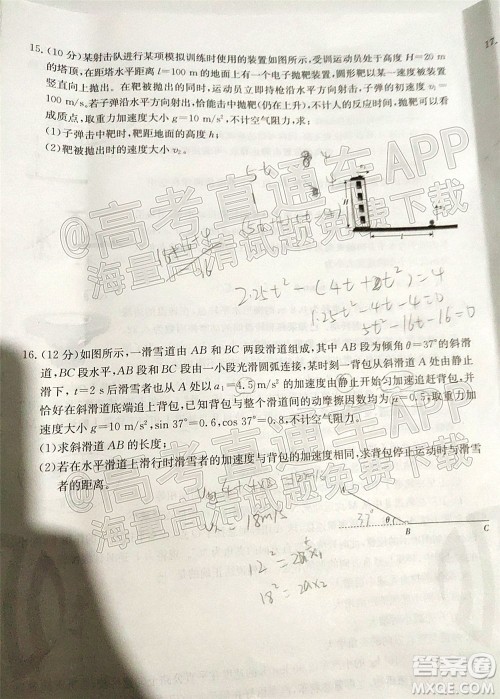 17.
15.(10分)某射击队进行某项模拟训练时使用的装置如图所示,受训运动员处于高度H=20 m
的塔顶,在距塔水平距离l=100 m的地面上有一个电子抛靶装置,圆形靶可以某一速度被装置
竖直向上抛出。在靶被抛出的同时立即用特制手枪沿水平方向射击,子弹的初速度v₁=
100 m/s。若子弹沿水平方向射出,恰能击中抛靶(仍在上升),不计人的反应时间,抛靶可以看
成质点,取重力加速度大小g=10 m/s²,不计空气阻力,求:
(1)子弹击中靶时,靶距地面的高度h;
(2)靶被抛出时的速度大小v₂。
H
l
2.25t²-(4t+2t²)=4
1.25t²-4t-4=0
5t²-16t-16=0
16.(12分)如图所示,一滑雪道由AB和BC两段滑道组成,其中AB段为倾角θ=37°的斜滑
道,BC段水平,AB段和BC段由一小段光滑圆弧连接,某时刻一背包从A处由静止
滑下,t=2 s后滑雪者也从A处以a₁=4.5 m/s²的加速度由静止开始匀加速追赶背包,并
恰好在斜滑道底端追上背包,已知背包与两段滑道间的动摩擦因数均为μ=0.5,取重力加
速度大小g=10 m/s²,sin 37°=0.6,cos 37°=0.8,不计空气阻力。
(1)求斜滑道AB的长度;
(2)若在水平滑道上滑行时滑雪者的加速度与背包的加速度相同,求背包停止运动时与滑雪
者的距离。
=18m/s
37°
θ
A
B
C
12²=2ax₁
18²=2ax₂
@高考直通车APP
海量高清试题免费下载
@高考直通车APP
海量高清试题免费下载
答案圈
MXQE.COM